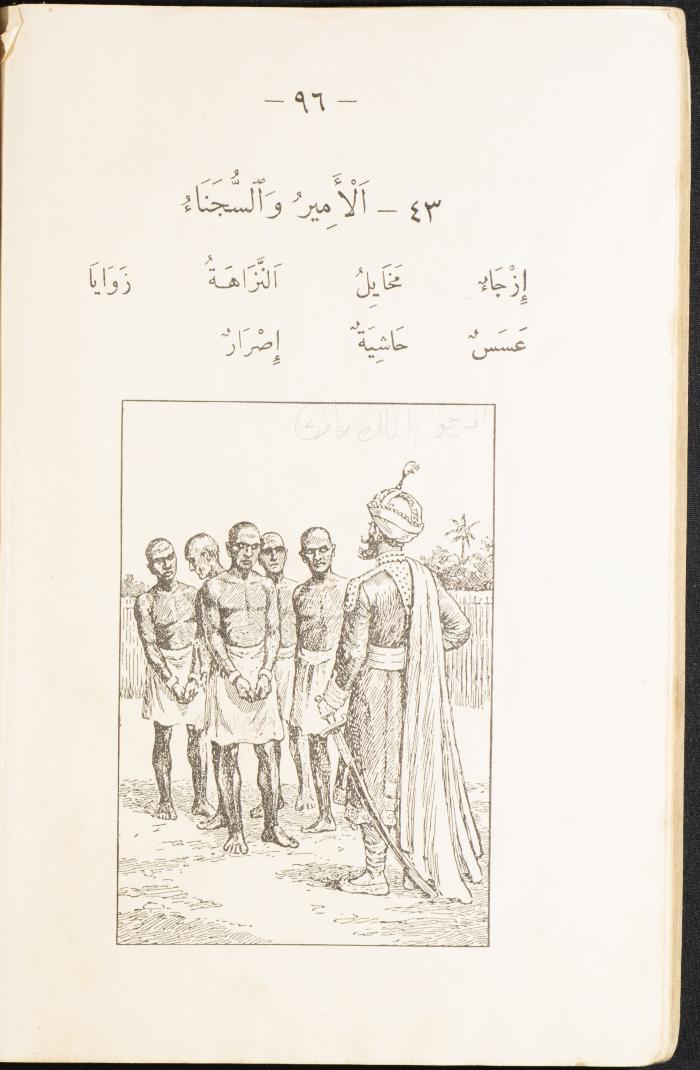 – ٩٦ –
٤٣ – اَلْأَمِيرُ وَٱلسُّجَنَاءُ
إِزْجَاءٌ مَخَايِلُ اَلنَّزَاهَةُ زَوَايَا
عَسَسٌ حَاشِيَةٌ إِصْرَارٌ
المرحوم الملك غازي